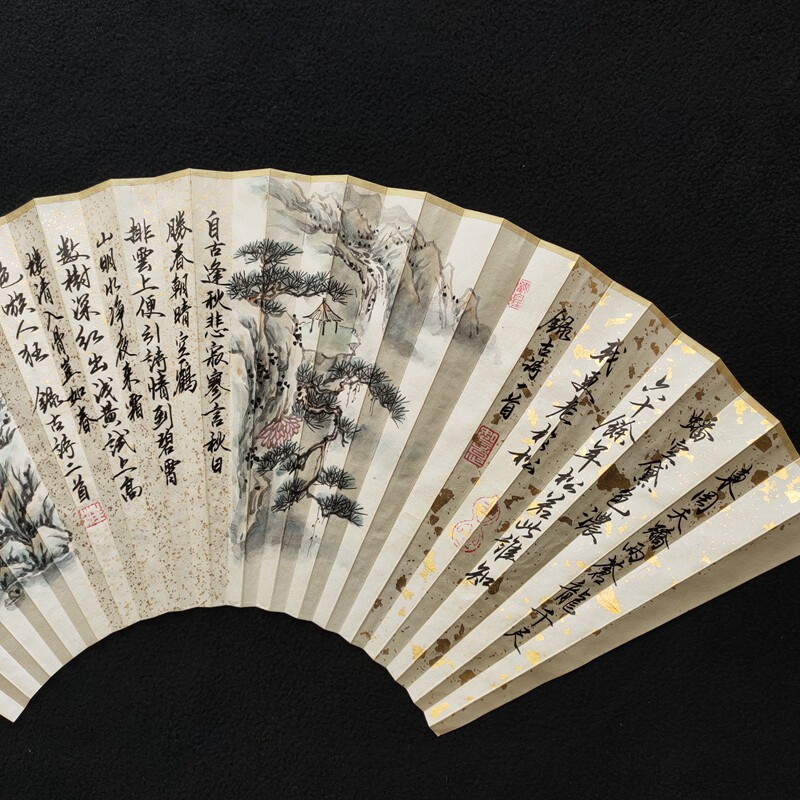 東園夭矯兩蒼龍千尺
蟠空黛色濃
六十餘年松若此誰知
我更老於松
錄古詩一首
自古逢秋悲寂寥言秋日
勝春朝晴空一鶴
排雲上便引詩情到碧霄
山明水淨夜來霜
數樹深紅出淺黃試上高
樓清入骨豈如春
色嗾人狂 錄古詩二首